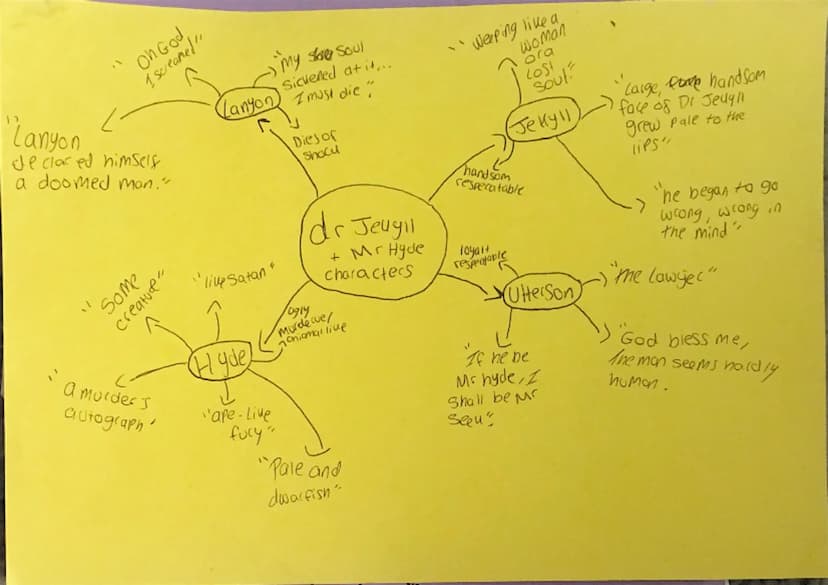 dr Jekyll
+ Mr Hyde
characters
Lanyon
"Oh God
I screamed"
"My soul
sickened at it...
I must die".
Dies of
shock
"Lanyon
declared himself
a doomed man."
Jekyll
"weeping like a
woman
or a
lost
soul"
"Large, handsom
face of Dr Jekyll
grew pale to the
lips"
"he began to go
wrong, wrong in
the mind"
handsom
respecatable
Utterson
respectable
"the lawyer"
"God bless me,
The man seems hardly
human.
"If he be
Mr hyde, I
shall be Mr
seek".
Hyde
ugly
animal like
"like Satan"
"some
creature"
"a murders
autograph"
"ape-like
fury"
"Pale and
dwarfish"